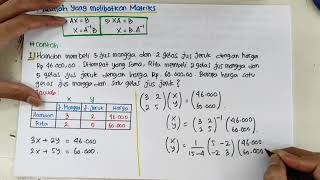 Masalah Yang Melibatkan Matriks
AX = B
X = A⁻¹ B
XA = B
X = B.A⁻¹
# Contoh
1) Hamdan membeli 3 jus mangga dan 2 gelas jus jeruk dengan harga
Rp 46.000,00. Ditempat yang sama, Rita membeli 2 jus mangga dan
5 gelas jus jeruk dengan harga Rp 60.000,00. Berapa harga satu
gelas jus mangga dan satu gelas jus jeruk?
x y
Harga
Hamdan 3 2 46.000
Rita 2 5 60.000
3x + 2y = 46.000
2x + 5y = 60.000
(3 2
2 5) (x
y) = (46.000
60.000)
(x
y) = (3 2
2 5)⁻¹ (46.000
60.000)
(x
y) = 1/15-4 (5 -2
-2 3) (46.000
60.000